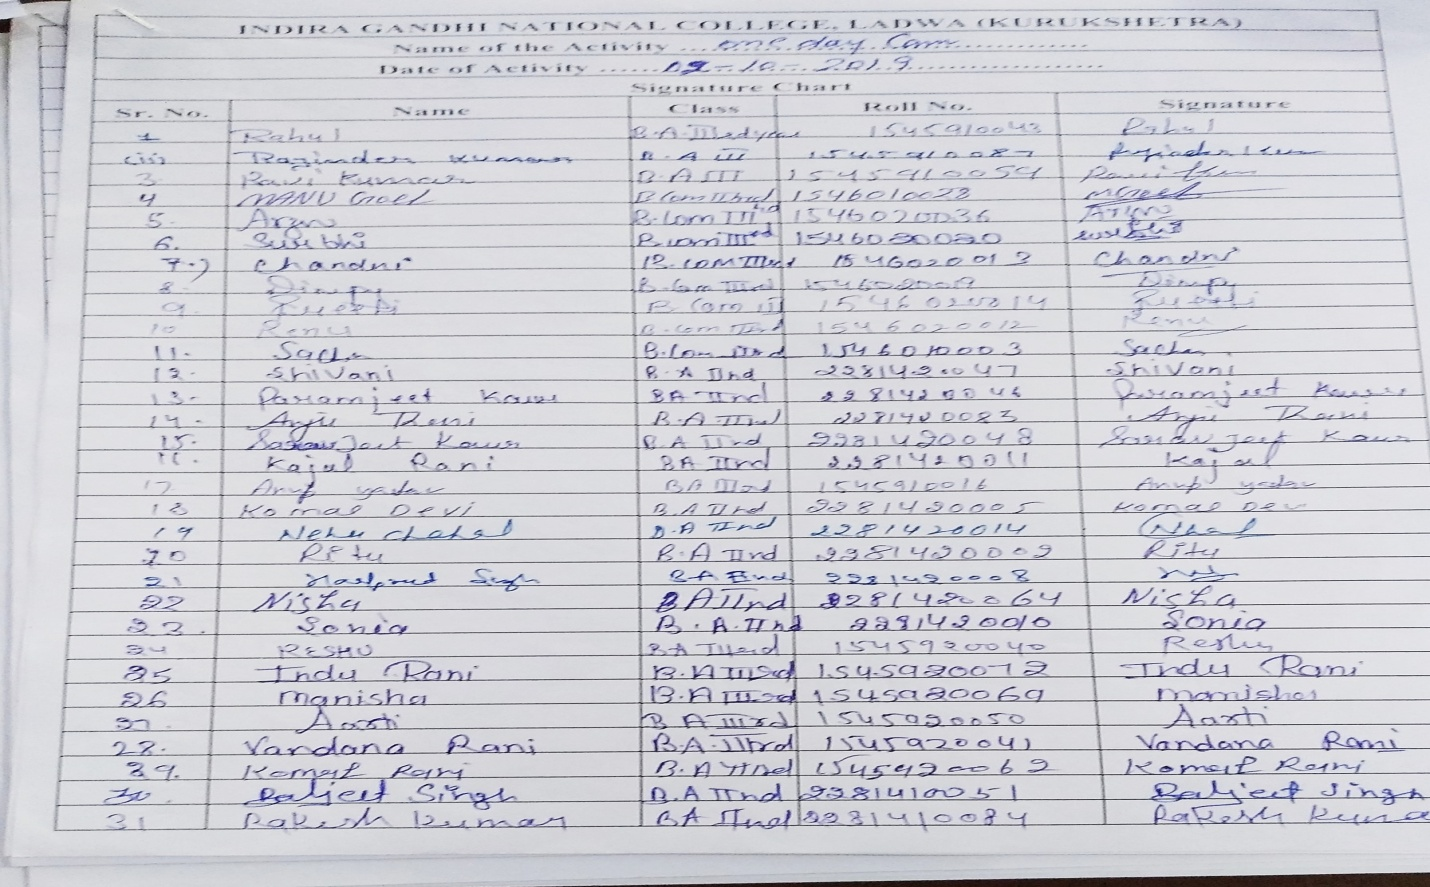 INDIRA GANDHI NATIONAL COLLEGE, LADWA (KURUKSHETRA)
Name of the Activity ... one day Cam............
Date of Activity ......09-10-2019..................
Signature Chart
Sr. No. Name Class Roll No. Signature
1 Rahul B.A IIIrd year 1545910043 Rahul
(ii) Rajinder Kumar B.A III 1545910087 Rajinder Kum
3 Ravi Kumar B.A III 1545910059 Ravi Kum
4 MANU Goel B.Com IIIrd 1546010028 MGoel
5. B.Com IIIrd 1546020036
6. Surbhi B.com IIIrd 1546020020 Surbhi
7.) Chandni B.com IIIrd 1546020013 Chandni
8. Dimpy B.Com IIIrd 1546020009 Dimpy
9. B.Com III 1546020014
10 Renu B.com IIIrd 1546020012 Renu
11. Sachin B.Com IIIrd 1546010003 Sachin
12. Shivani B.A IInd 2281420047 Shivani
13. Paramjeet Kaur BA IInd 2281420046 Paramjeet Kaur
14. Anju Rani B.A IInd 2281420083 Anju Rani
15. Kaur B.A IInd 2281420048 Kaur
16. Kajal Rani BA IInd 2281420011 Kajal
17 Anup yadav BA IIIrd 1545910016 Anup yadav
18 Komal Devi B.A IInd 2281420005 Komal Dev
19 Neha chahal B.A IInd 2281420014
20 Ritu B.A IInd 2281420002 Ritu
21 Singh BA IInd 2281420008
22 Nisha BA IInd 2281420064 Nisha
23. Sonia B.A. IInd 2281420010 Sonia
24 RESHU BA IIIrd 1545920040 Reshu
25 Indu Rani B.A IIIrd 1545920072 Indu Rani
26 Manisha B.A IIIrd 1545920069 Manisha
27. Aarti B A IIIrd 1545920050 Aarti
28. Vandana Rani B.A. IIIrd 1545920041 Vandana Rani
29. Komal Rani B.A IInd 1545920062 Komal Rani
30. Baljeet Singh B.A IInd 2281410051 Baljeet Singh
31 Rakesh Kumar BA IInd 2281410084 Rakesh Kuma